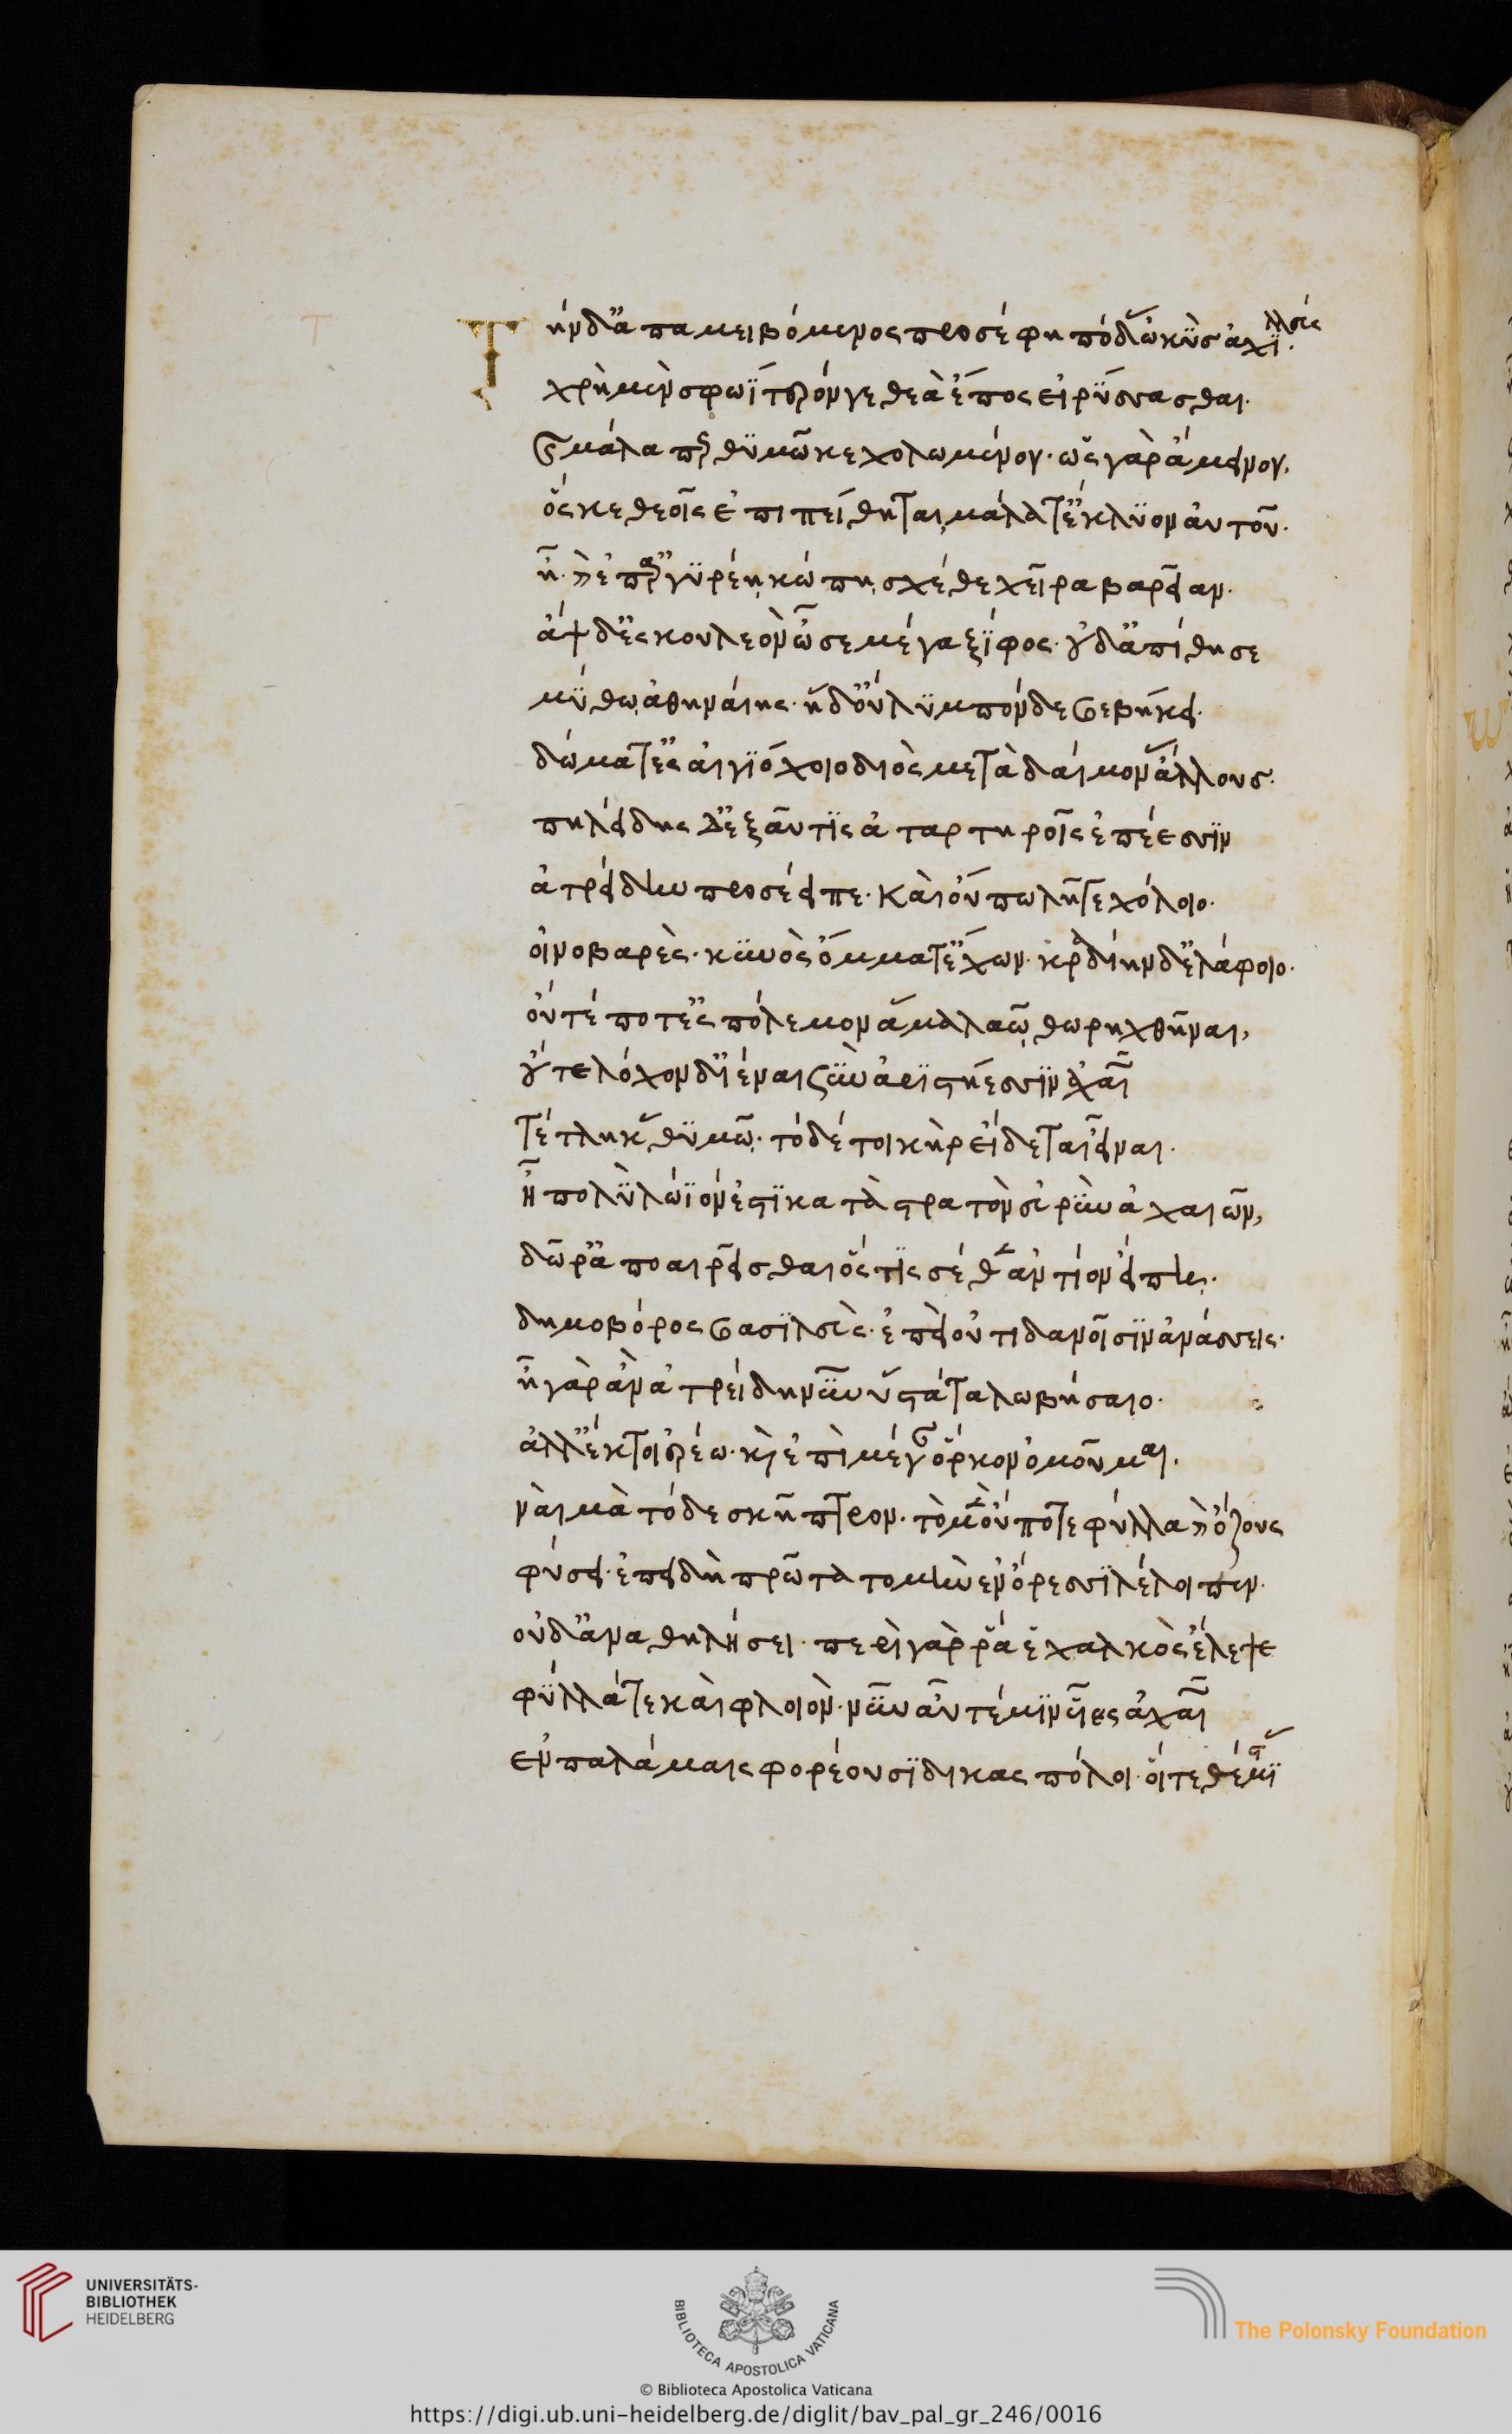 Τὴν δ' ἀπαμειβόμενος προσέφη πόδας ὠκὺς ἀχιλλεύς.
χρὴ μὲν σφωΐτερόν γε θεὰ ἔπος εἰρύσσασθαι.
καὶ μάλα περ θυμῷ κεχολωμένον. ὣς γὰρ ἄμεινον.
ὅς κε θεοῖς ἐπιπείθηται, μάλα τ' ἔκλυον αὐτοῦ.
ἦ. καὶ ἐπ' ἀργυρέῃ κώπῃ σχέθε χεῖρα βαρεῖαν.
ἂψ δ' ἐς κουλεὸν ὦσε μέγα ξίφος. οὐδ' ἀπίθησε
μύθῳ ἀθηναίης. ἡ δ' οὔλυμπόνδε βεβήκει.
δώματ' ἐς αἰγιόχοιο διὸς μετὰ δαίμονας ἄλλους.
πηλείδης δ' ἐξαῦτις ἀταρτηροῖς ἐπέεσσιν
ἀτρείδην προσέειπε. καὶ οὔπω λῆγε χόλοιο.
οἰνοβαρὲς. κυνὸς ὄμματ' ἔχων. κραδίην δ' ἐλάφοιο.
οὔτέ ποτ' ἐς πόλεμον ἅμα λαῷ θωρηχθῆναι,
οὔτε λόχονδ' ἰέναι σὺν ἀριστήεσσιν ἀχαιῶν
τέτληκας θυμῷ. τὸ δέ τοι κὴρ εἴδεται εἶναι.
ἦ πολὺ λώϊόν ἐστι κατὰ στρατὸν εὐρὺν ἀχαιῶν,
δῶρ' ἀποαιρεῖσθαι ὅστις σέθεν ἀντίον εἴπῃ.
δημοβόρος βασιλεὺς. ἐπεὶ οὐτιδανοῖσιν ἀνάσσεις.
ἦ γὰρ ἂν ἀτρείδη νῦν ὕστατα λωβήσαιο.
ἀλλ' ἔκ τοι ἐρέω. καὶ ἐπὶ μέγαν ὅρκον ὀμοῦμαι.
ναὶ μὰ τόδε σκῆπτρον. τὸ μὲν οὔποτε φύλλα καὶ ὄζους
φύσει. ἐπειδὴ πρῶτα τομὴν ἐν ὄρεσσι λέλοιπεν.
οὐδ' ἀναθηλήσει. περὶ γὰρ ῥά ἑ χαλκὸς ἔλεψε
φύλλά τε καὶ φλοιόν. νῦν αὖτέ μιν υἷες ἀχαιῶν
ἐν παλάμαις φορέουσι δικασπόλοι. οἵτε θέμιστας
UNIVERSITÄTS-
BIBLIOTHEK
HEIDELBERG
BIBLIOTECA APOSTOLICA VATICANA
The Polonsky Foundation
© Biblioteca Apostolica Vaticana
https://digi.ub.uni-heidelberg.de/diglit/bav_pal_gr_246/0016